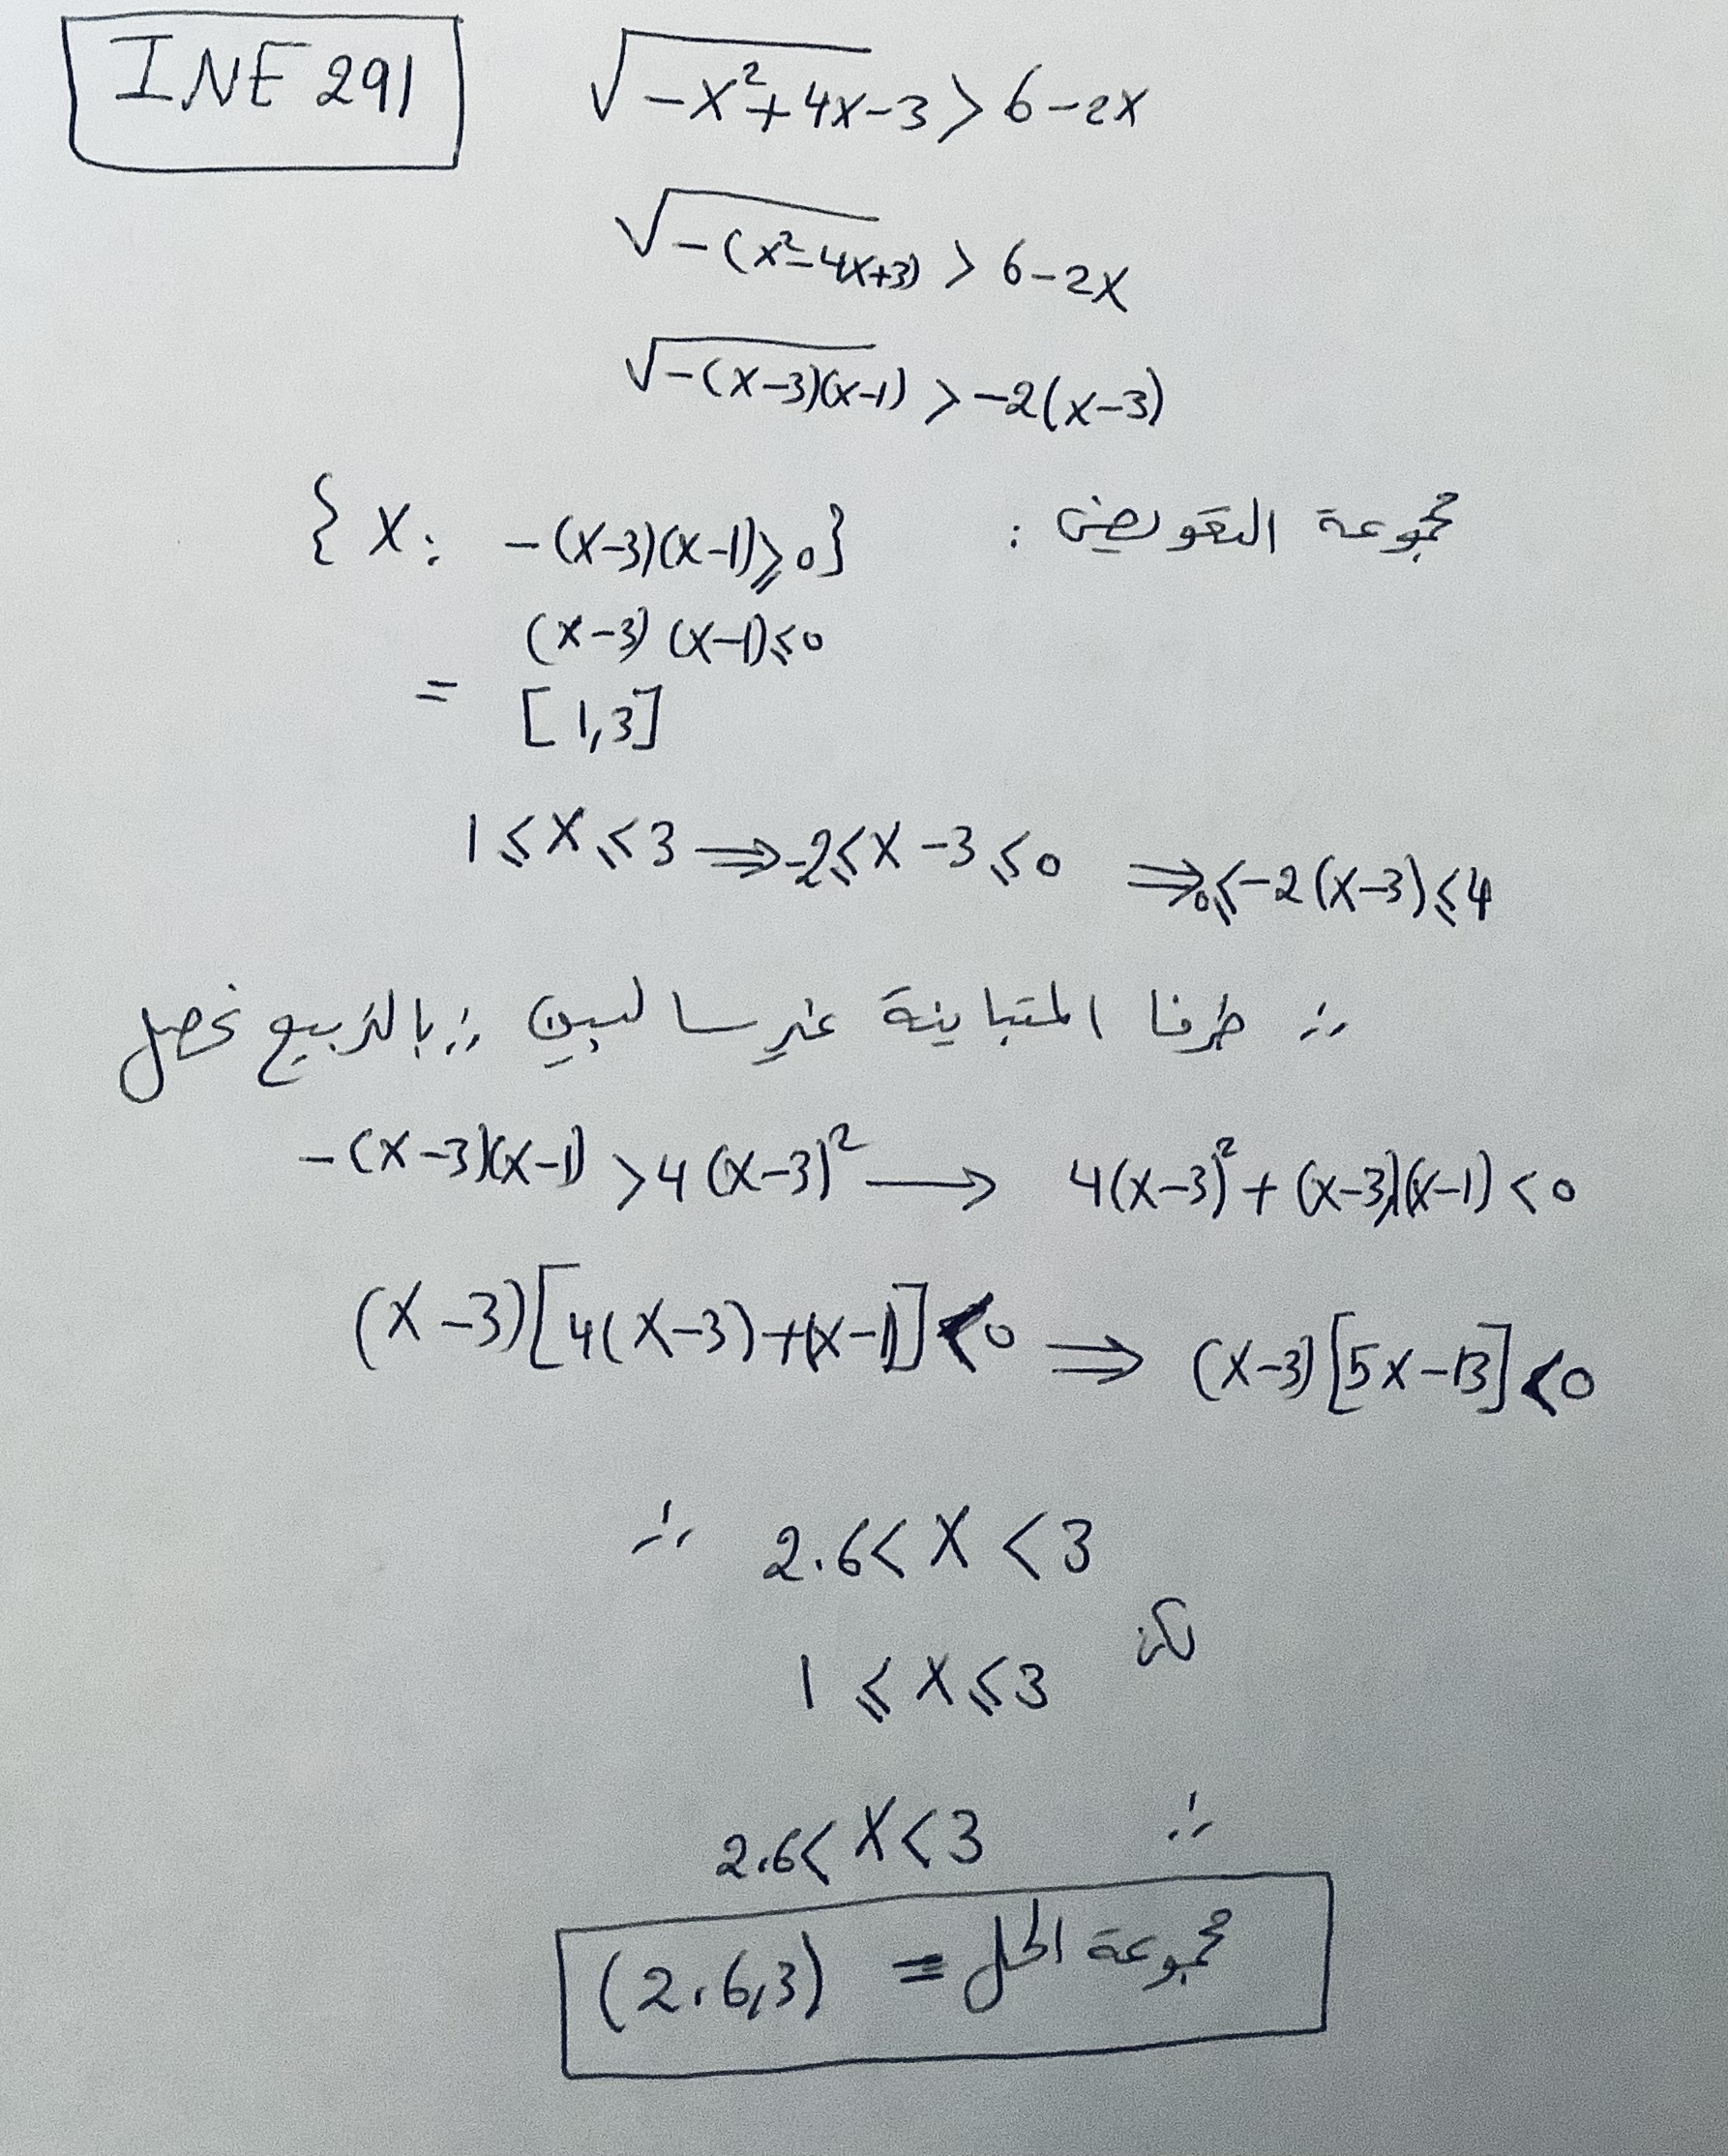 INE 291
√-x²+4x-3 > 6-2x
√-(x²-4x+3) > 6-2x
√-(x-3)(x-1) > -2(x-3)
مجموعة التعويض : {x: -(x-3)(x-1) ≥ 0}
(x-3)(x-1) ≤ 0
= [1,3]
1 ≤ x ≤ 3 ⟹ -2 ≤ x-3 ≤ 0 ⟹ 0 ≤ -2(x-3) ≤ 4
∴ طرفا المتباينة غير سالبين ∴ بالتربيع نحصل
-(x-3)(x-1) > 4(x-3)² ⟶ 4(x-3)² + (x-3)(x-1) < 0
(x-3)[4(x-3)+(x-1)] < 0 ⟹ (x-3)[5x-13] < 0
∴ 2.6 < x < 3
لكن 1 ≤ x ≤ 3
∴ 2.6 < x < 3
مجموعة الحل = (2.6,3)